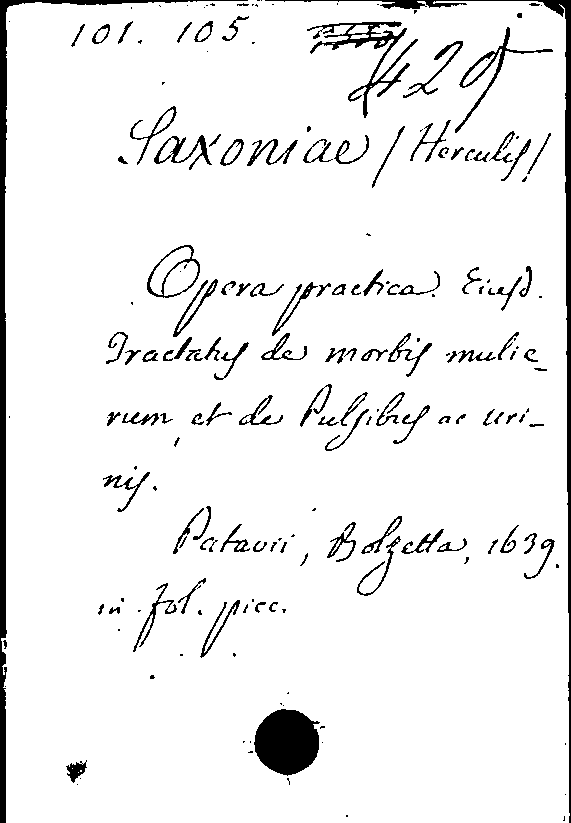 101. 105.
429
Saxoniae (Herculis)
Opera practica. Eiusd.
Tractatus de morbis mulie_
rum, et de Pulsibus ac Uri_
nis.
Patavii, Bolzetta, 1639.
in fol. picc.